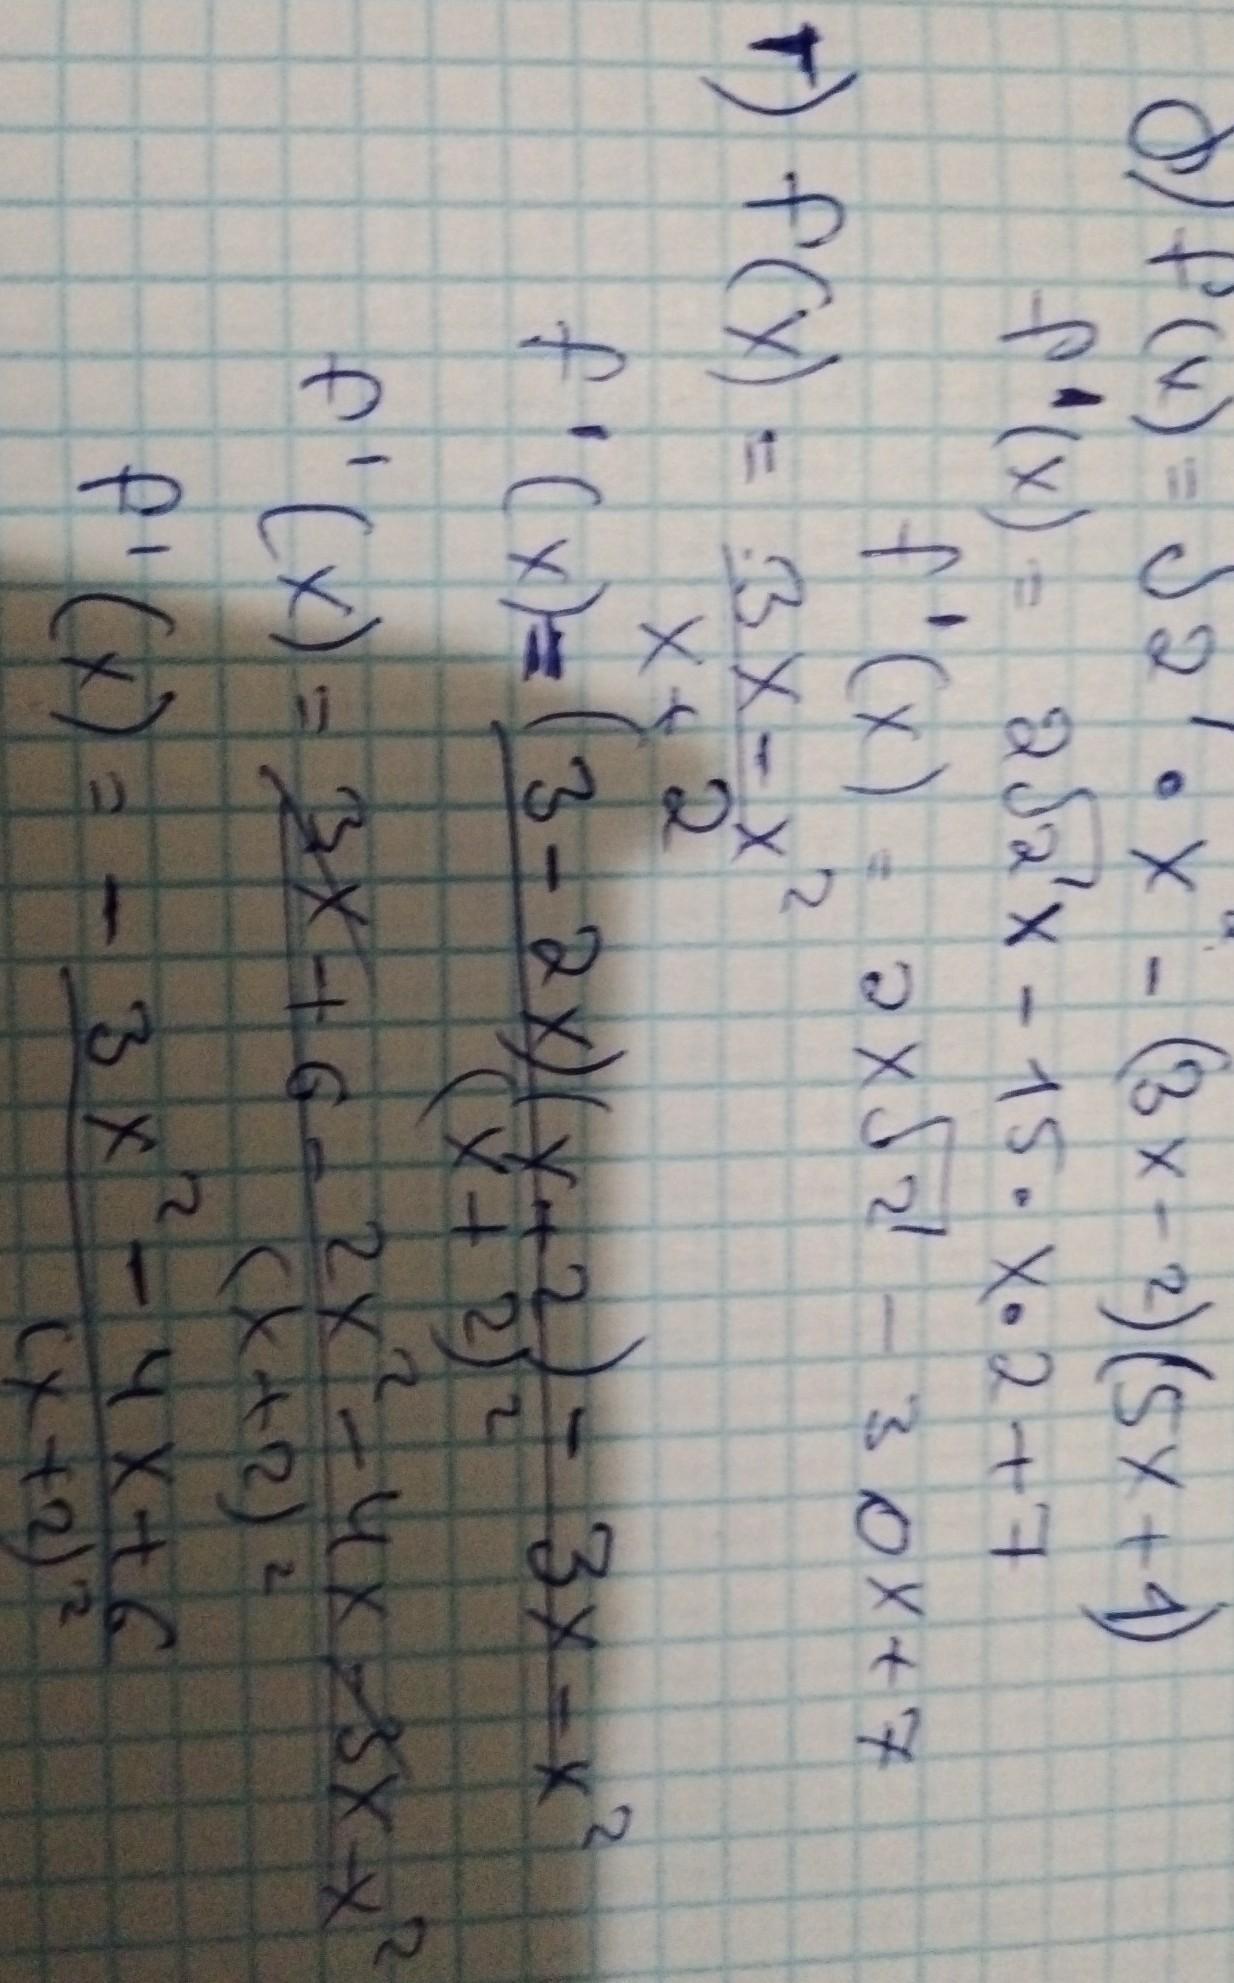 б) f(x) = √2 · x² - (3x - 2)(5x + 1)
f'(x) = 2√2 x - 15 · x · 2 + 7
f'(x) = 2x√2 - 30x + 7
г) f(x) = 3x - x²
x + 2
f'(x) = (3 - 2x)(x + 2) - 3x - x²
(x + 2)²
f'(x) = 3x + 6 - 2x² - 4x - 3x - x²
(x + 2)²
f'(x) = - 3x² - 4x + 6
(x + 2)²